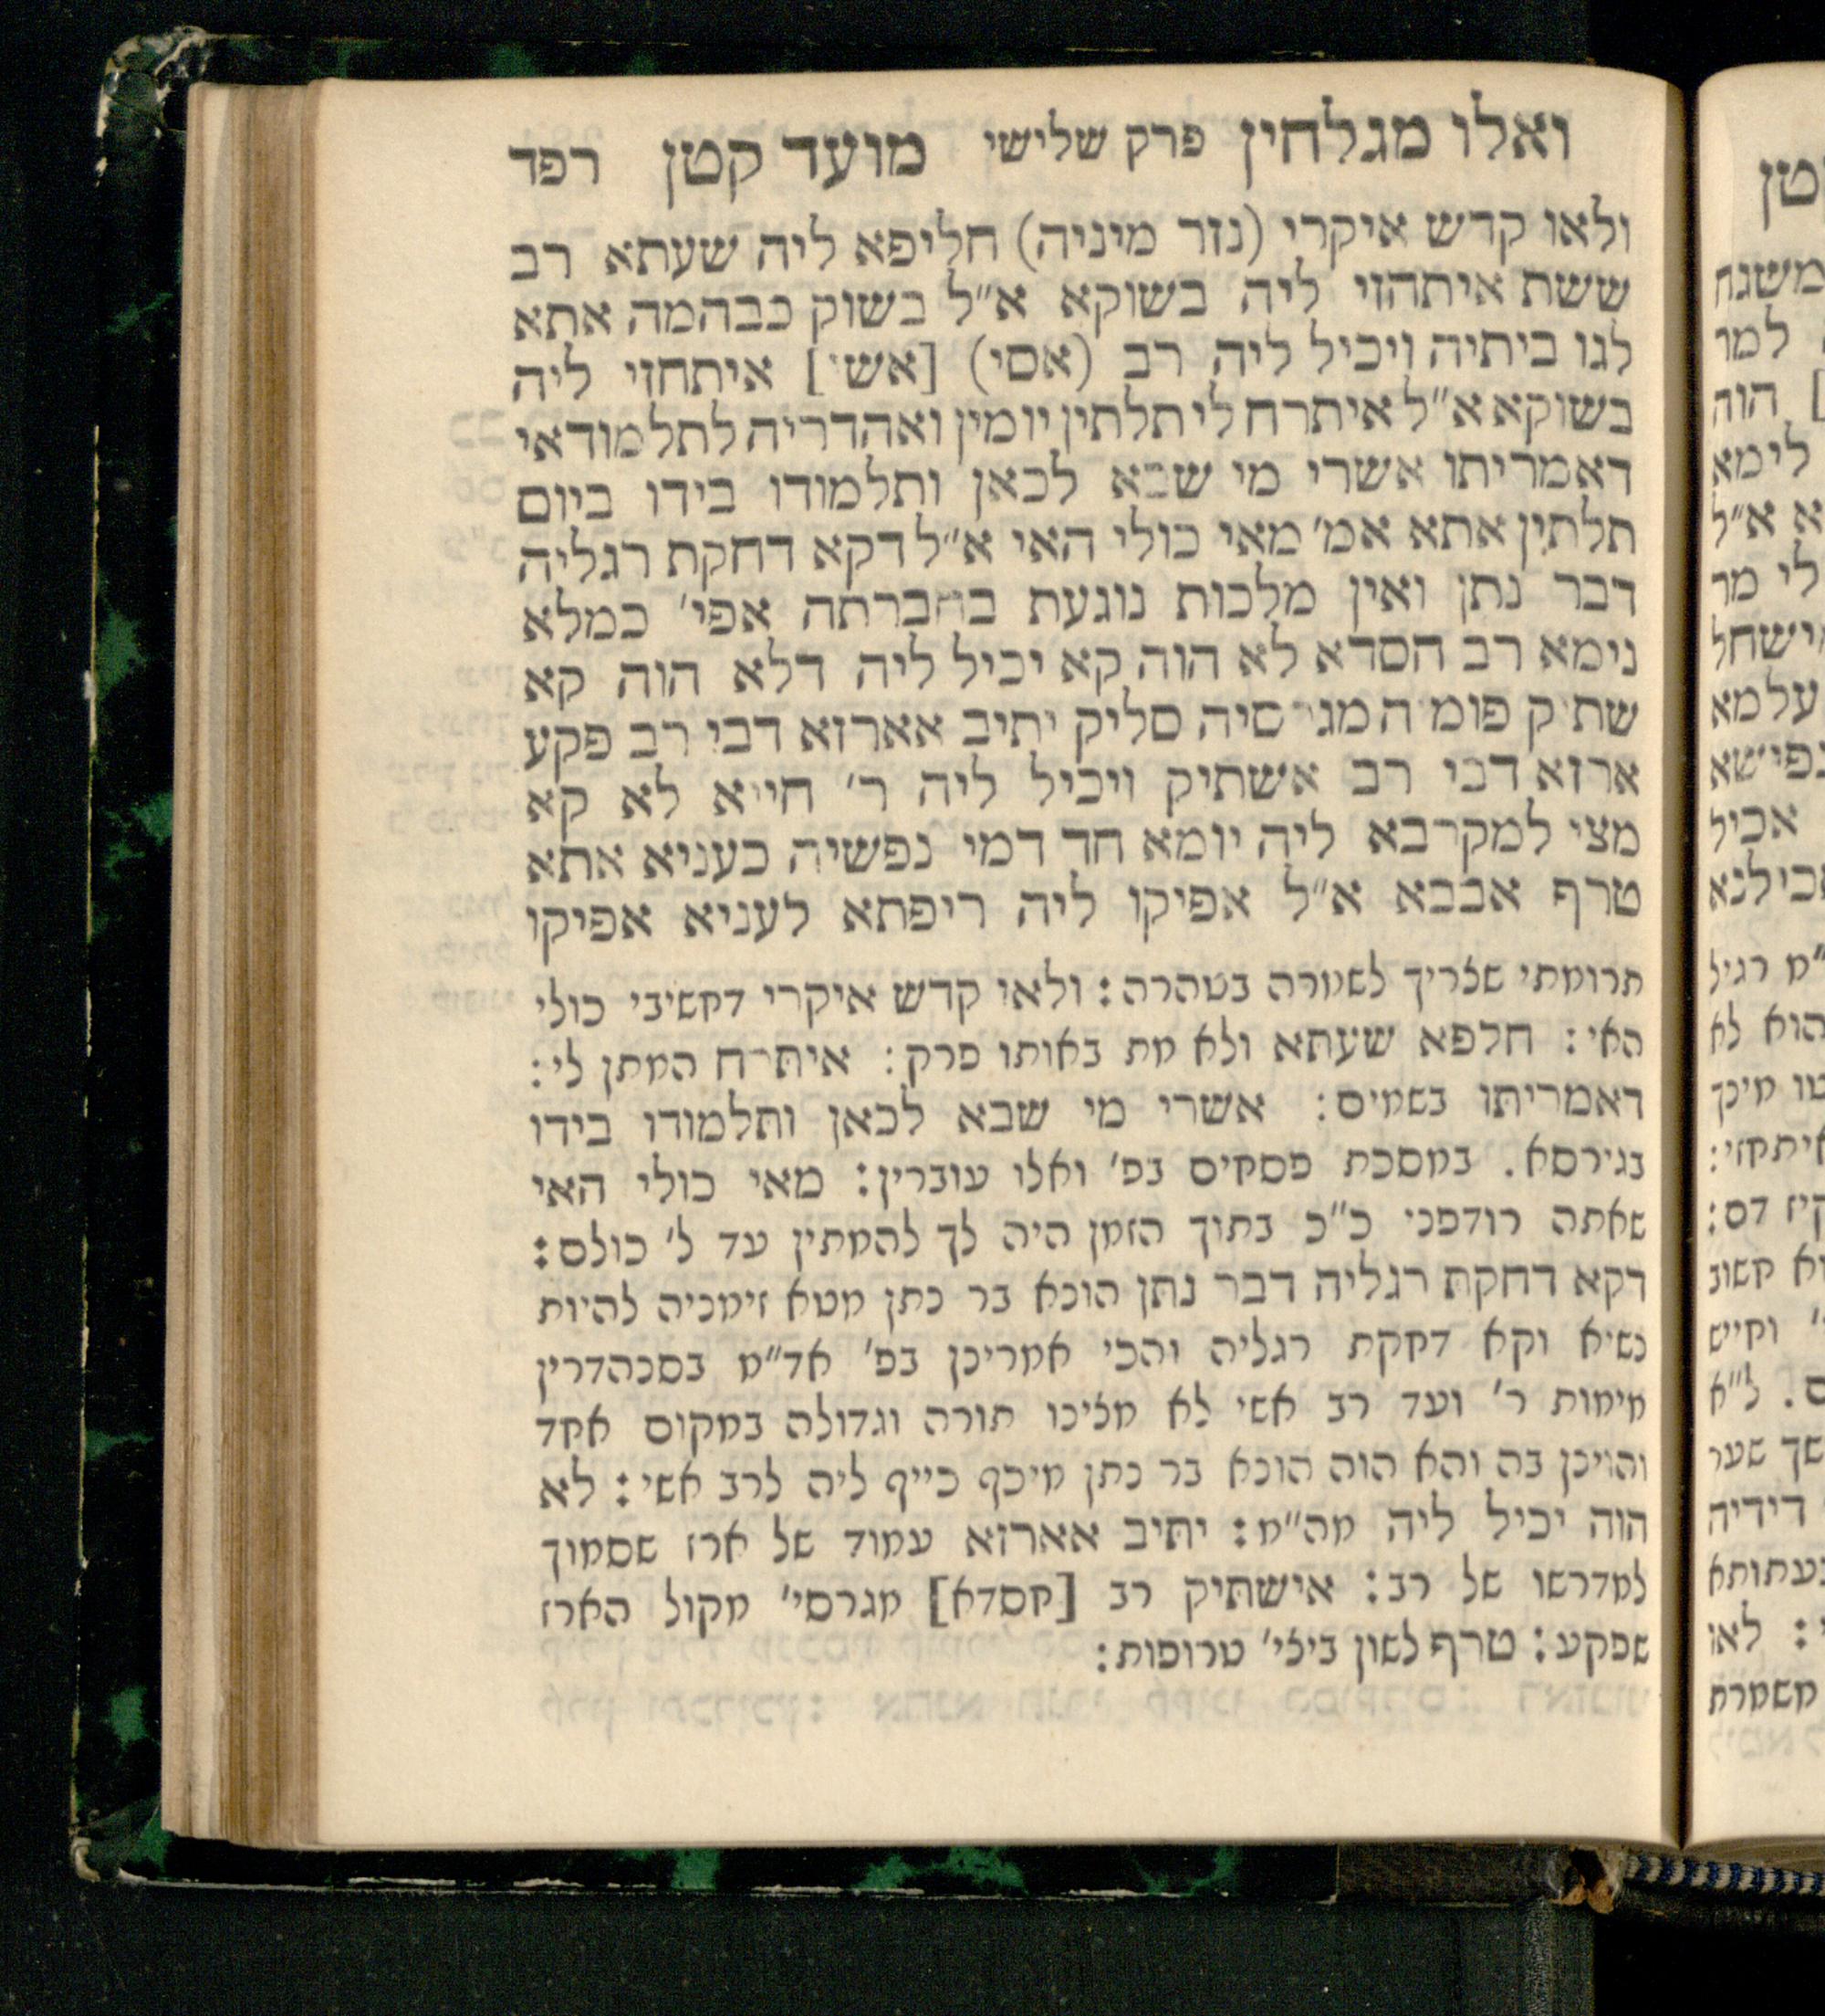 ואלו מגלחין פרק שלישי מועד קטן רפד
ולאו קדש איקרי (נזר מיניה) חליפא ליה שעתא רב
ששת איתהזי ליה בשוקא א״ל בשוק כבהמה אתא
לגו ביתיה ויכיל ליה רב (אסי) [אשי] איתחזי ליה
בשוקא א״ל איתרח לי תלתין יומין ואהדריה לתלמודאי
דאמריתו אשרי מי שבא לכאן ותלמודו בידו ביום
תלתין אתא אמ׳ מאי כולי האי א״ל דקא דחקת רגליה
דבר נתן ואין מלכות נוגעת בחברתה אפי׳ כמלא
נימא רב חסדא לא הוה קא יכיל ליה דלא הוה קא
שתיק פומיה מגירסיה סליק יתיב אארזא דבי רב פקע
ארזא דבי רב אשתיק ויכיל ליה ר׳ חייא לא קא
מצי למקרבא ליה יומא חד דמי נפשיה כעניא אתא
טרף אבבא א״ל אפיקו ליה ריפתא לעניא אפיקו
תרומתי שצריך לשמרה בטהרה: ולאו קדש איקרי דחשיבי כולי
האי: חלפא שעתא ולא מת באותו פרק: איתרח המתן לי:
דאמריתו בשמים: אשרי מי שבא לכאן ותלמודו בידו
בגירסא. במסכת פסחים בפ׳ ואלו עוברין: מאי כולי האי
שאתה רודפני כ״כ בתוך הזמן היה לך להמתין עד ל׳ כולם:
דקא דחקת רגליה דבר נתן הונא בר נתן מטא זימניה להיות
נשיא וקא דחקת רגליה והכי אמרינן בפ׳ אד״מ בסנהדרין
מימות ר׳ ועד רב אשי לא מצינו תורה וגדולה במקום אחד
והוינן בה והא הוה הונא בר נתן מיכף כייף ליה לרב אשי: לא
הוה יכיל ליה מה״מ: יתיב אארזא עמוד של ארז שסמוך
למדרשו של רב: אישתיק רב [חסדא] מגרסי׳ מקול הארז
שפקע: טרף לשון ביצי׳ טרופות: